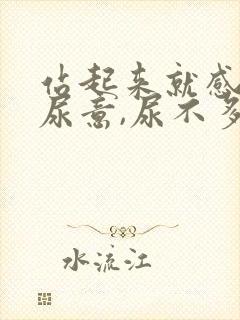 站起来就感
尿意,尿不多
水流江